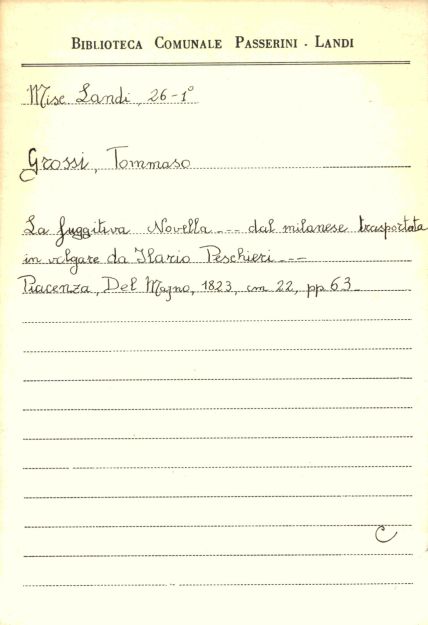 BIBLIOTECA COMUNALE PASSERINI - LANDI
Misc. Landi, 26-1°
Grossi, Tommaso
La fuggitiva Novella --- dal milanese trasportata
in volgare da Ilario Peschieri ---
Piacenza, Del Majno, 1823, cm 22, pp 63-
C